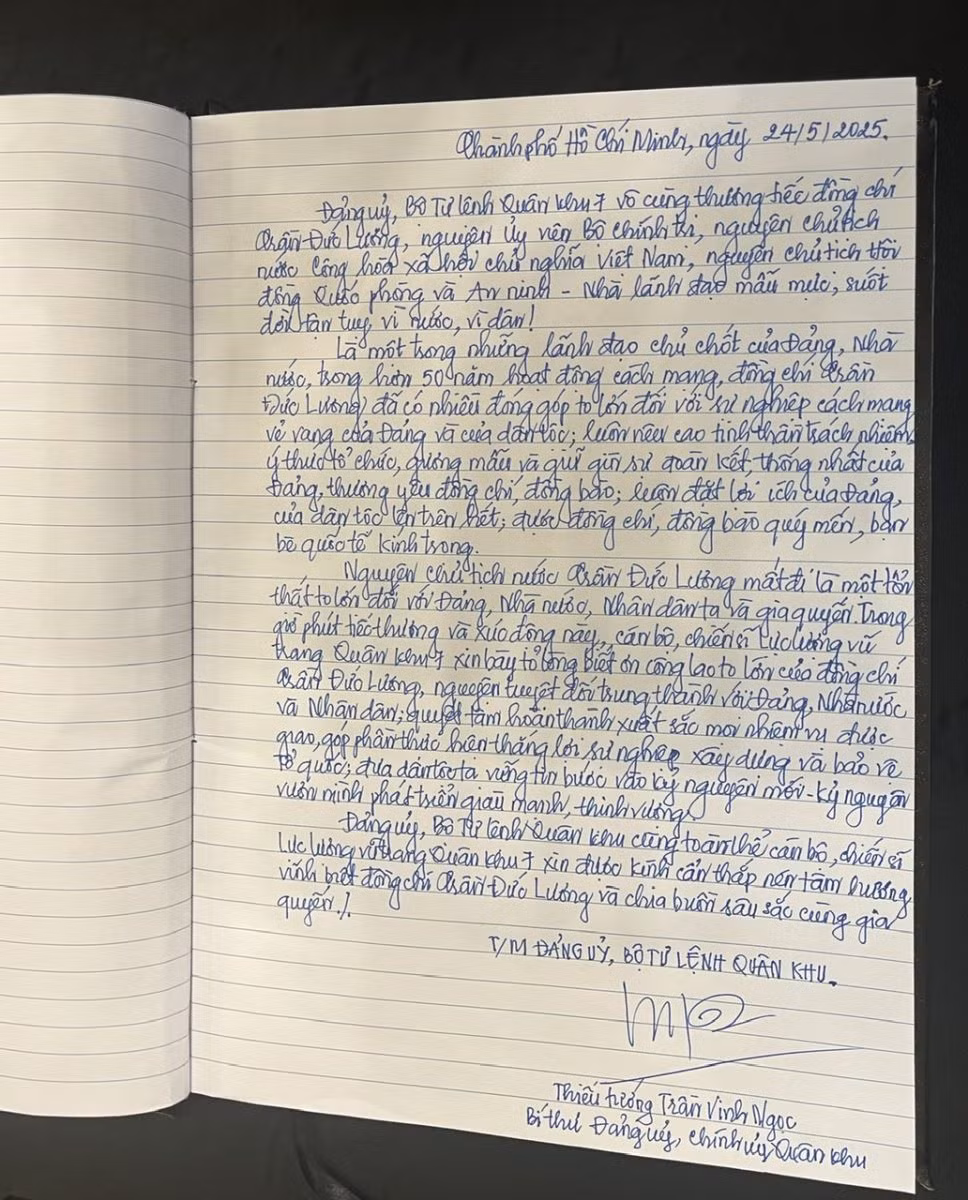 Thành phố Hồ Chí Minh, ngày 24/5/2025.
Đảng uỷ, Bộ Tư lệnh Quân khu 7 vô cùng thương tiếc đồng chí
Trần Đức Lương, nguyên Ủy viên Bộ chính trị, nguyên chủ tịch
nước Cộng hòa xã hội chủ nghĩa Việt Nam, nguyên chủ tịch Hội
đồng Quốc phòng và An ninh - Nhà lãnh đạo mẫu mực, suốt
đời tận tuỵ vì nước, vì dân!
Là một trong những lãnh đạo chủ chốt của Đảng, Nhà
nước, trong hơn 50 năm hoạt động cách mạng, đồng chí Trần
Đức Lương đã có nhiều đóng góp to lớn đối với sự nghiệp cách mạng
vẻ vang của Đảng và của dân tộc; luôn nêu cao tinh thần trách nhiệm,
ý thức tổ chức, gương mẫu và giữ gìn sự đoàn kết, thống nhất của
Đảng, thương yêu đồng chí, đồng bào; luôn đặt lợi ích của Đảng,
của dân tộc lên trên hết; được đồng chí, đồng bào quý mến, bạn
bè quốc tế kính trọng.
Nguyên chủ tịch nước Trần Đức Lương mất đi là một tổn
thất to lớn đối với Đảng, Nhà nước, Nhân dân ta và gia quyến. Trong
giờ phút tiếc thương và xúc động này, cán bộ, chiến sĩ Lực lượng vũ
trang Quân khu 7 xin bày tỏ lòng biết ơn công lao to lớn của đồng chí
Trần Đức Lương, nguyện tuyệt đối trung thành với Đảng, Nhà nước
và Nhân dân; quyết tâm hoàn thành xuất sắc mọi nhiệm vụ được
giao, góp phần thực hiện thắng lợi sự nghiệp xây dựng và bảo vệ
Tổ quốc; đưa dân tộc ta vững tin bước vào kỷ nguyên mới - kỷ nguyên
vươn mình phát triển giàu mạnh, thịnh vượng.
Đảng uỷ, Bộ Tư lệnh Quân khu cùng toàn thể cán bộ, chiến sĩ
Lực lượng vũ trang Quân khu 7 xin được kính cẩn thắp nén tâm hương
vĩnh biệt đồng chí Trần Đức Lương và chia buồn sâu sắc cùng gia
quyến./.
T/M ĐẢNG UỶ, BỘ TƯ LỆNH QUÂN KHU.
Thiếu tướng Trần Vinh Ngọc
Bí thư Đảng uỷ, chính uỷ Quân khu